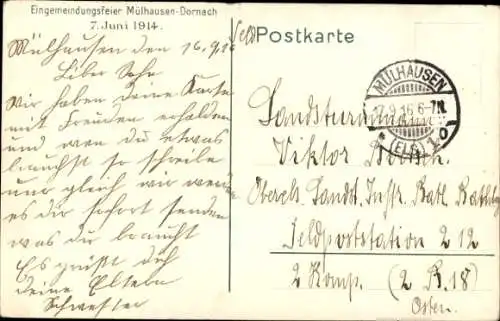 Eingemeindungsfeier Mülhausen-Dornach
7. Juni 1914.
Mülhausen den 16.9.16
Liber Sohn
Wir haben deine Karte
mit Freuden erhalden
und wen du etwas
brauchst so schreibe
uns gleich wir werden
es dir sofort senden
was du braucht
Es grüßt dich
deine Eltern
Schwester
Feld Postkarte
MÜLHAUSEN
17.9.16.6-7N.
(ELS.)
Landsturmmann
Viktor
Landst. Inftr. Batl.
Feldpoststation 212
2 Komp. (2 B. 18)
Osten.